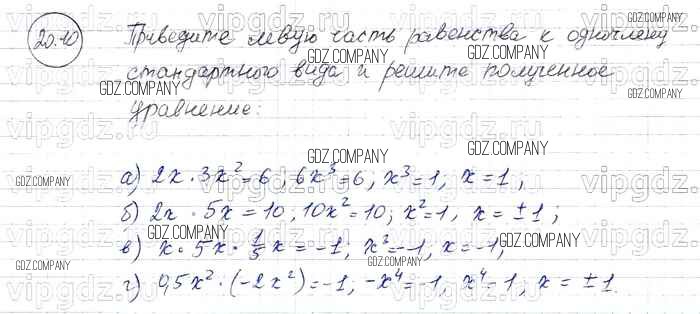 20.10 Приведите левую часть равенства к одночлену
стандартного вида и решите полученное
уравнение:
а) 2x · 3x² = 6; 6x³ = 6; x³ = 1, x = 1;
б) 2x · 5x = 10; 10x² = 10; x² = 1, x = ±1;
в) x · 5x · 1/5 x = -1; x³ = -1, x = -1;
г) 0,5x² · (-2x²) = -1; -x⁴ = -1, x⁴ = 1, x = ±1.
vipgdz.ru
GDZ.COMPANY